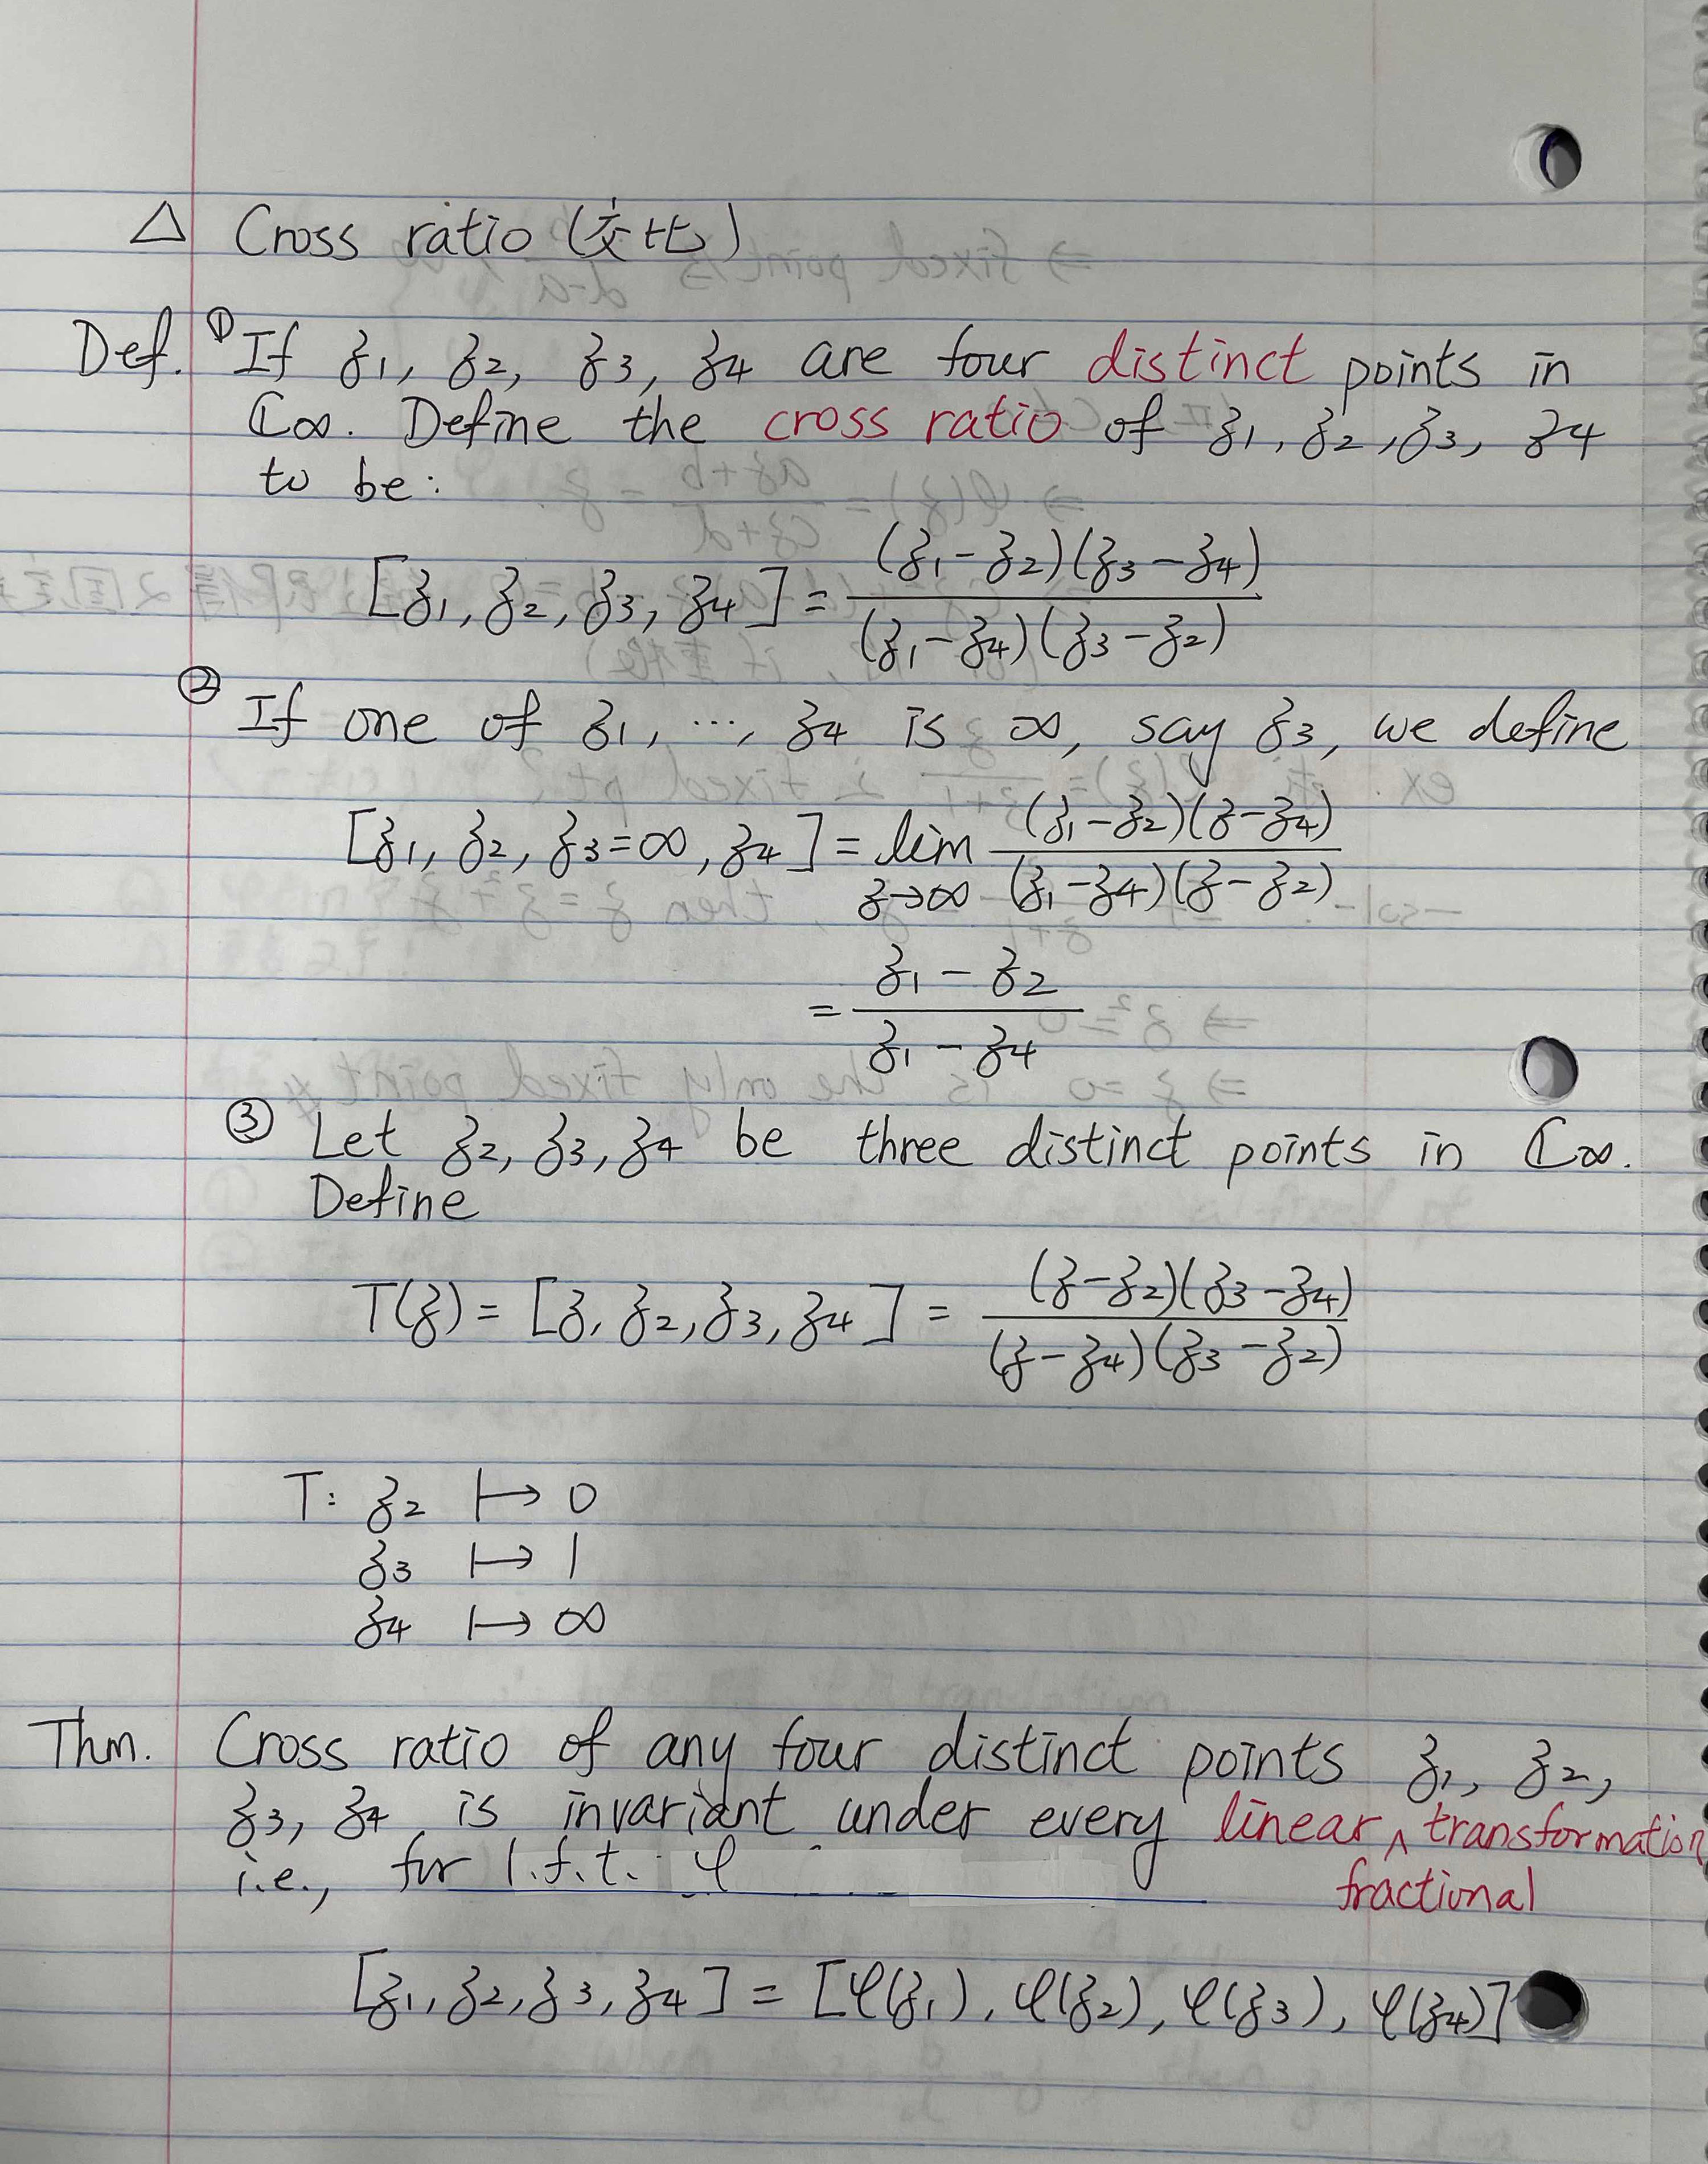 △ Cross ratio (交比)
Def. ① If z1, z2, z3, z4 are four distinct points in
ℂ∞. Define the cross ratio of z1, z2, z3, z4
to be:
[z1, z2, z3, z4] = (z1 - z2)(z3 - z4) / (z1 - z4)(z3 - z2)
② If one of z1, ..., z4 is ∞, say z3, we define
[z1, z2, z3=∞, z4] = lim z→∞ (z1 - z2)(z - z4) / (z1 - z4)(z - z2)
= z1 - z2 / z1 - z4
③ Let z2, z3, z4 be three distinct points in ℂ∞.
Define
T(z) = [z, z2, z3, z4] = (z - z2)(z3 - z4) / (z - z4)(z3 - z2)
T: z2 ↦ 0
z3 ↦ 1
z4 ↦ ∞
Thm. Cross ratio of any four distinct points z1, z2,
z3, z4 is invariant under every linear ∧ transformation,
fractional
i.e., for l.f.t. φ
[z1, z2, z3, z4] = [φ(z1), φ(z2), φ(z3), φ(z4)]